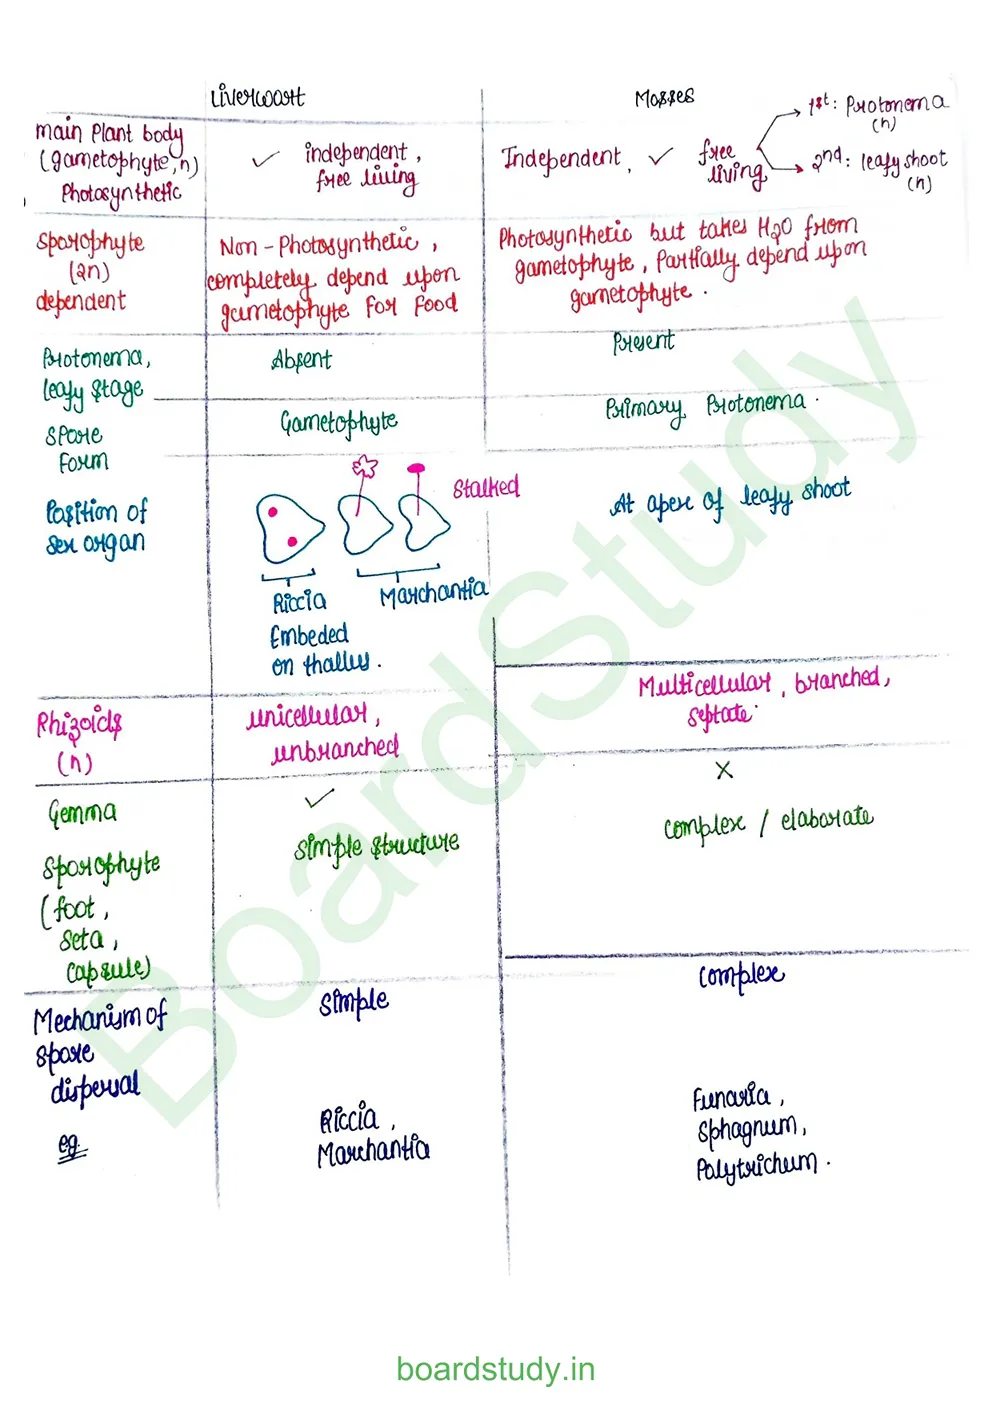 Liverwort
Mosses
main Plant body
(gametophyte, n)
Photosynthetic
✓ independent,
free living
Independent, ✓ free
living
1st: Protonema
(n)
2nd: leafy shoot
(n)
Sporophyte
(2n)
dependent
Non-Photosynthetic,
completely depend upon
gametophyte for food
Photosynthetic but takes H2O from
gametophyte, Partially depend upon
gametophyte.
Protonema,
leafy stage
Absent
Present
Spore
form
Gametophyte
Primary Protonema.
Position of
sex organ
Stalked
Riccia
Embeded
on thallus.
Marchantia
At apex of leafy shoot
Rhizoids
(n)
unicellular,
unbranched
Multicellular, branched,
septate.
Gemma
✓
X
Sporophyte
(foot,
seta,
capsule)
simple structure
complex / elaborate
Mechanism of
spore
dispersal
simple
complex
eg.
Riccia,
Marchantia
Funaria,
Sphagnum,
Polytrichum.
BoardStudy
boardstudy.in